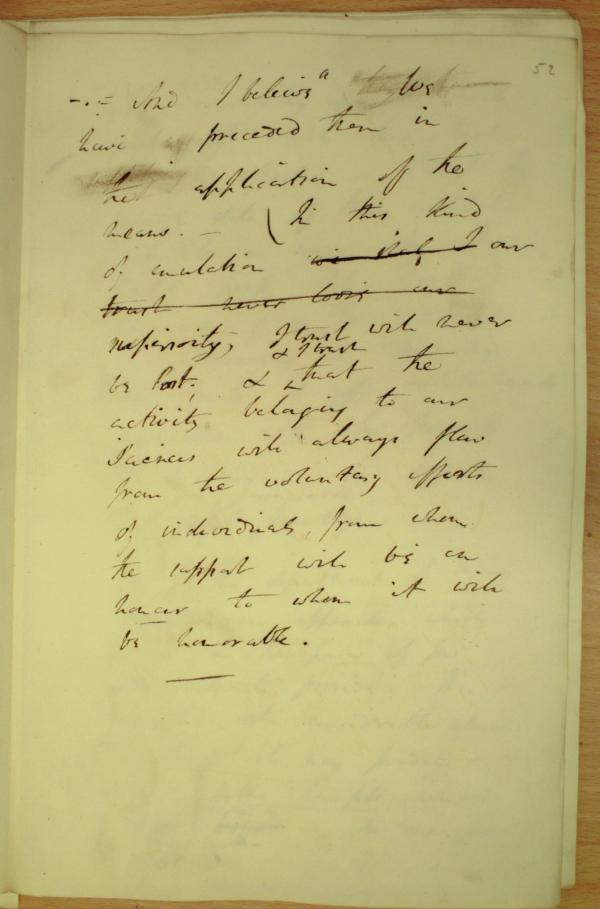 52
-.= And I believe" We
have preceded them in
the application of the
means. - ( In this kind
of emulation we shall I our
trust never loose our
superiority, I trust will never
& I trust
be lost; & that the
activity belonging to our
Sciences will always flow
from the voluntary efforts
of individuals, from whom
the support will be an
honour to whom it will
be honorable.